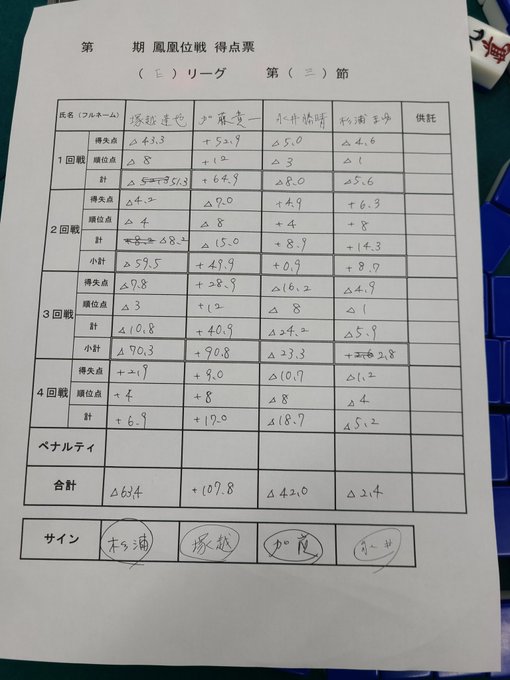 第 期 鳳凰位戦 得点票
( E ) リーグ 第 ( 三 ) 節
氏名 (フルネーム) 塚越達也 加藤貴一 永井勝晴 杉浦 供託
1回戦 得失点 △43.3 +52.9 △5.0 △4.6
順位点 △8 +12 △3 △1
計 △51.3 +64.9 △8.0 △5.6
2回戦 得失点 △4.2 △7.0 +4.9 +6.3
順位点 △4 △8 +4 +8
計 +8.2 △8.2 △15.0 +8.9 +14.3
小計 △59.5 +49.9 +0.9 +8.7
3回戦 得失点 △7.8 +28.9 △16.2 △4.9
順位点 △3 +12 △8 △1
計 △10.8 +40.9 △24.2 △5.9
小計 △70.3 +90.8 △23.3 +2.6 2.8
4回戦 得失点 +2.9 +9.0 △10.7 △1.2
順位点 +4 +8 △8 △4
計 +6.9 +17.0 △18.7 △5.2
ペナルティ
合計 △63.4 +107.8 △42.0 △2.4
サイン 杉浦 塚越 加藤 永井